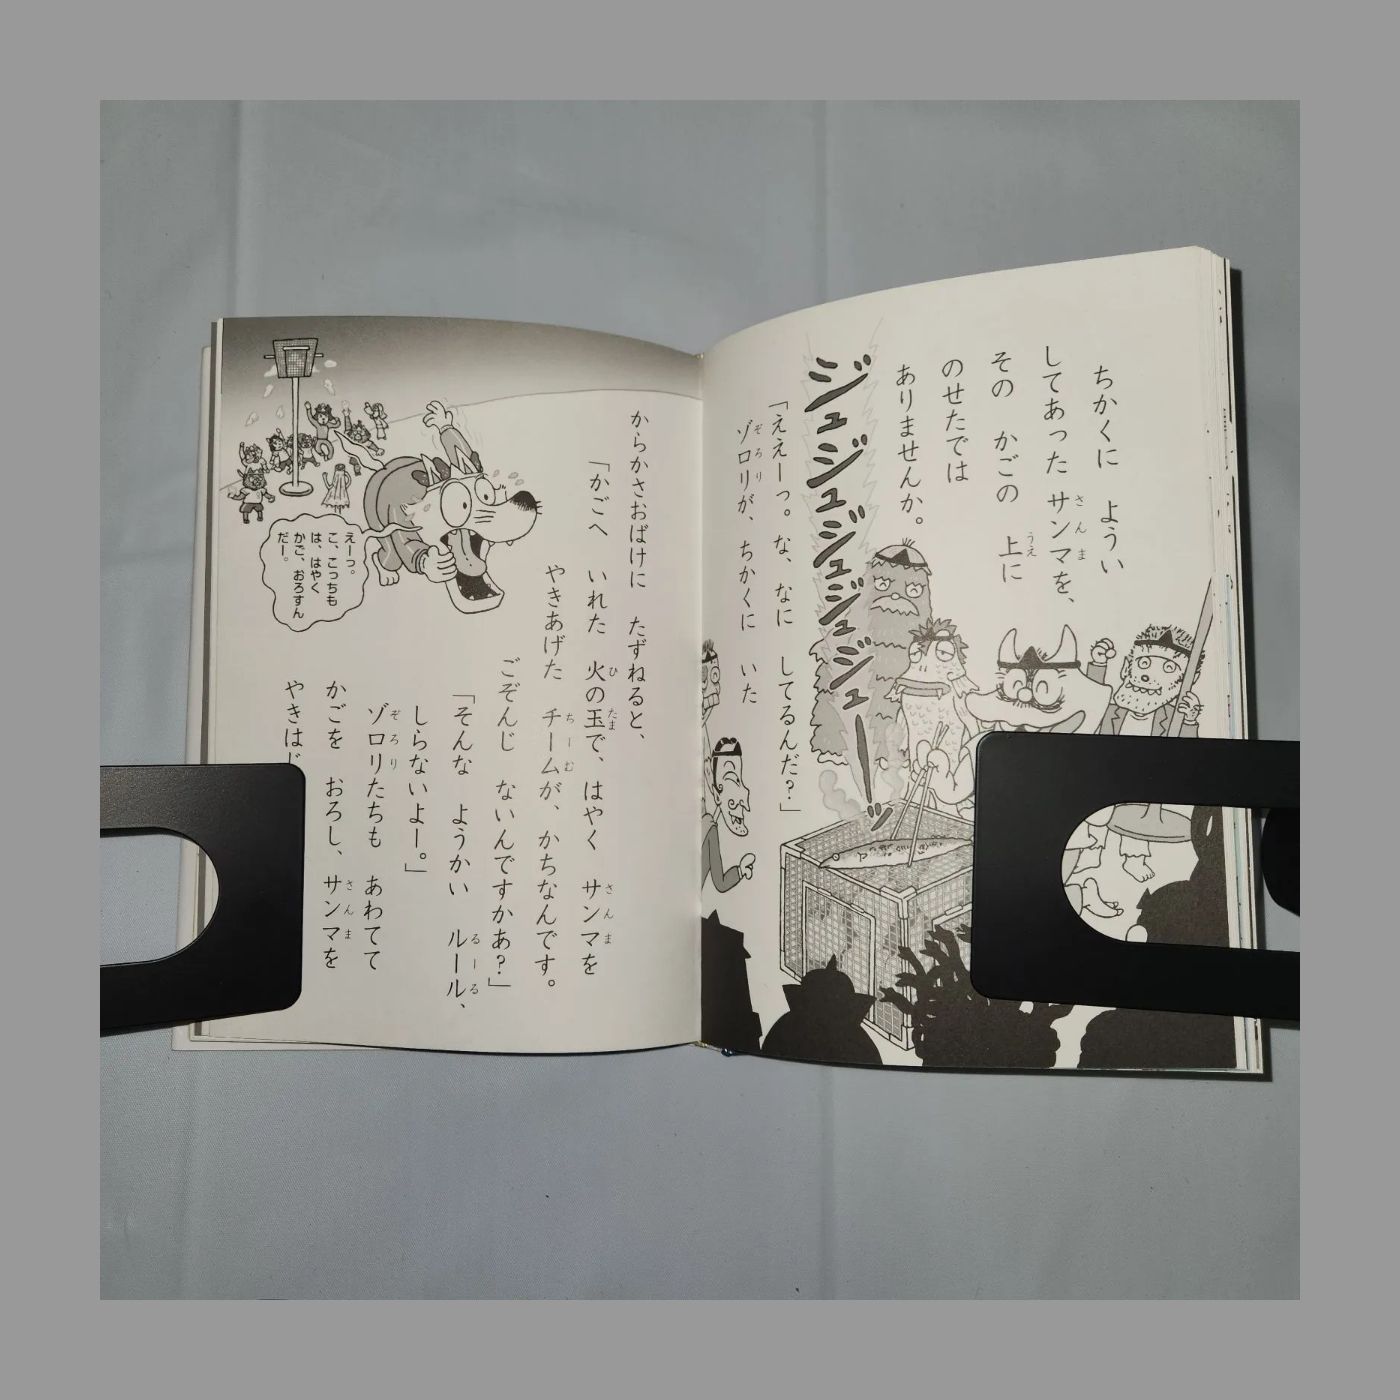 ちかくに ようい
してあった サンマを、
その かごの 上に
のせたでは
ありませんか。
ジュジュジュジュジューッ
「ええーっ。な、なに してるんだ?」
ゾロリが、ちかくに いた
からかさおばけに たずねると、
「かごへ いれた 火の玉で、はやく サンマを
やきあげた チームが、かちなんです。
ごぞんじ ないんですかあ?」
「そんな ようかい ルール、
しらないよー。」
ゾロリたちも あわてて
かごを おろし、サンマを
やきはじ
えーっ。
こ、こっちも
は、はやく
かご、おろすん
だー。